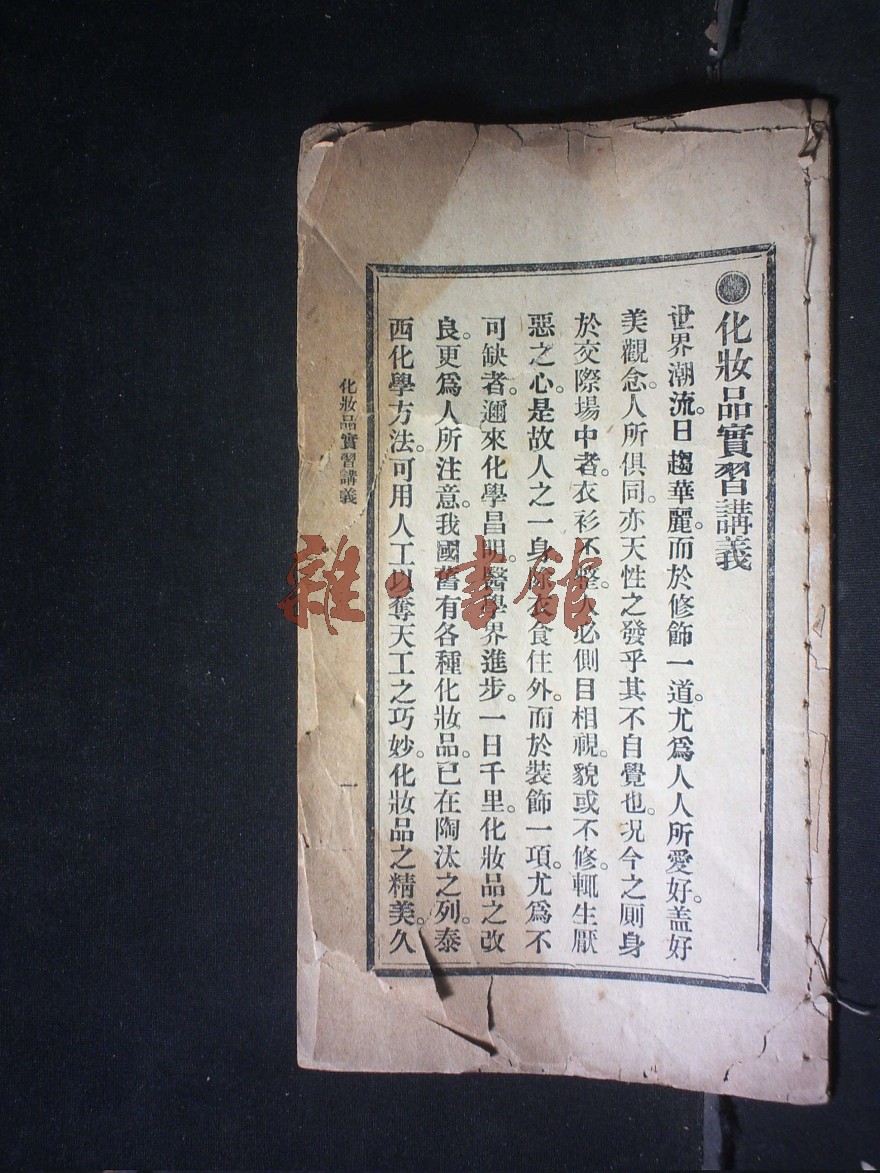 化妝品實習講義
世界潮流。日趨華麗。而於修飾一道。尤爲人人所愛好。盖好
美觀念。人所俱同。亦天性之發乎其不自覺也。况今之厠身
於交際場中者。衣衫不整。人必側目相視。貌或不修。輒生厭
惡之心。是故人之一身。除衣食住外。而於裝飾一項。尤爲不
可缺者。邇來化學昌明。醫學界進步。一日千里。化妝品之改
良。更爲人所注意。我國舊有各種化妝品。已在陶汰之列。泰
西化學方法。可用人工以奪天工之巧妙。化妝品之精美。久
化妝品實習講義
一
雜書館